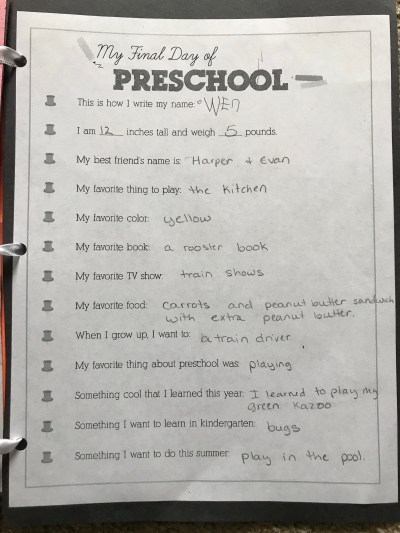 My Final Day of
PRESCHOOL
This is how I write my name: WEN
I am 12 inches tall and weigh 5 pounds.
My best friend's name is: Harper + Evan
My favorite thing to play: the kitchen
My favorite color: yellow
My favorite book: a rooster book
My favorite TV show: train shows
My favorite food: carrots and peanut butter sandwich
with extra peanut butter.
When I grow up, I want to: a train driver
My favorite thing about preschool was: playing
Something cool that I learned this year: I learned to play my
green kazoo
Something I want to learn in kindergarten: bugs
Something I want to do this summer: play in the pool.